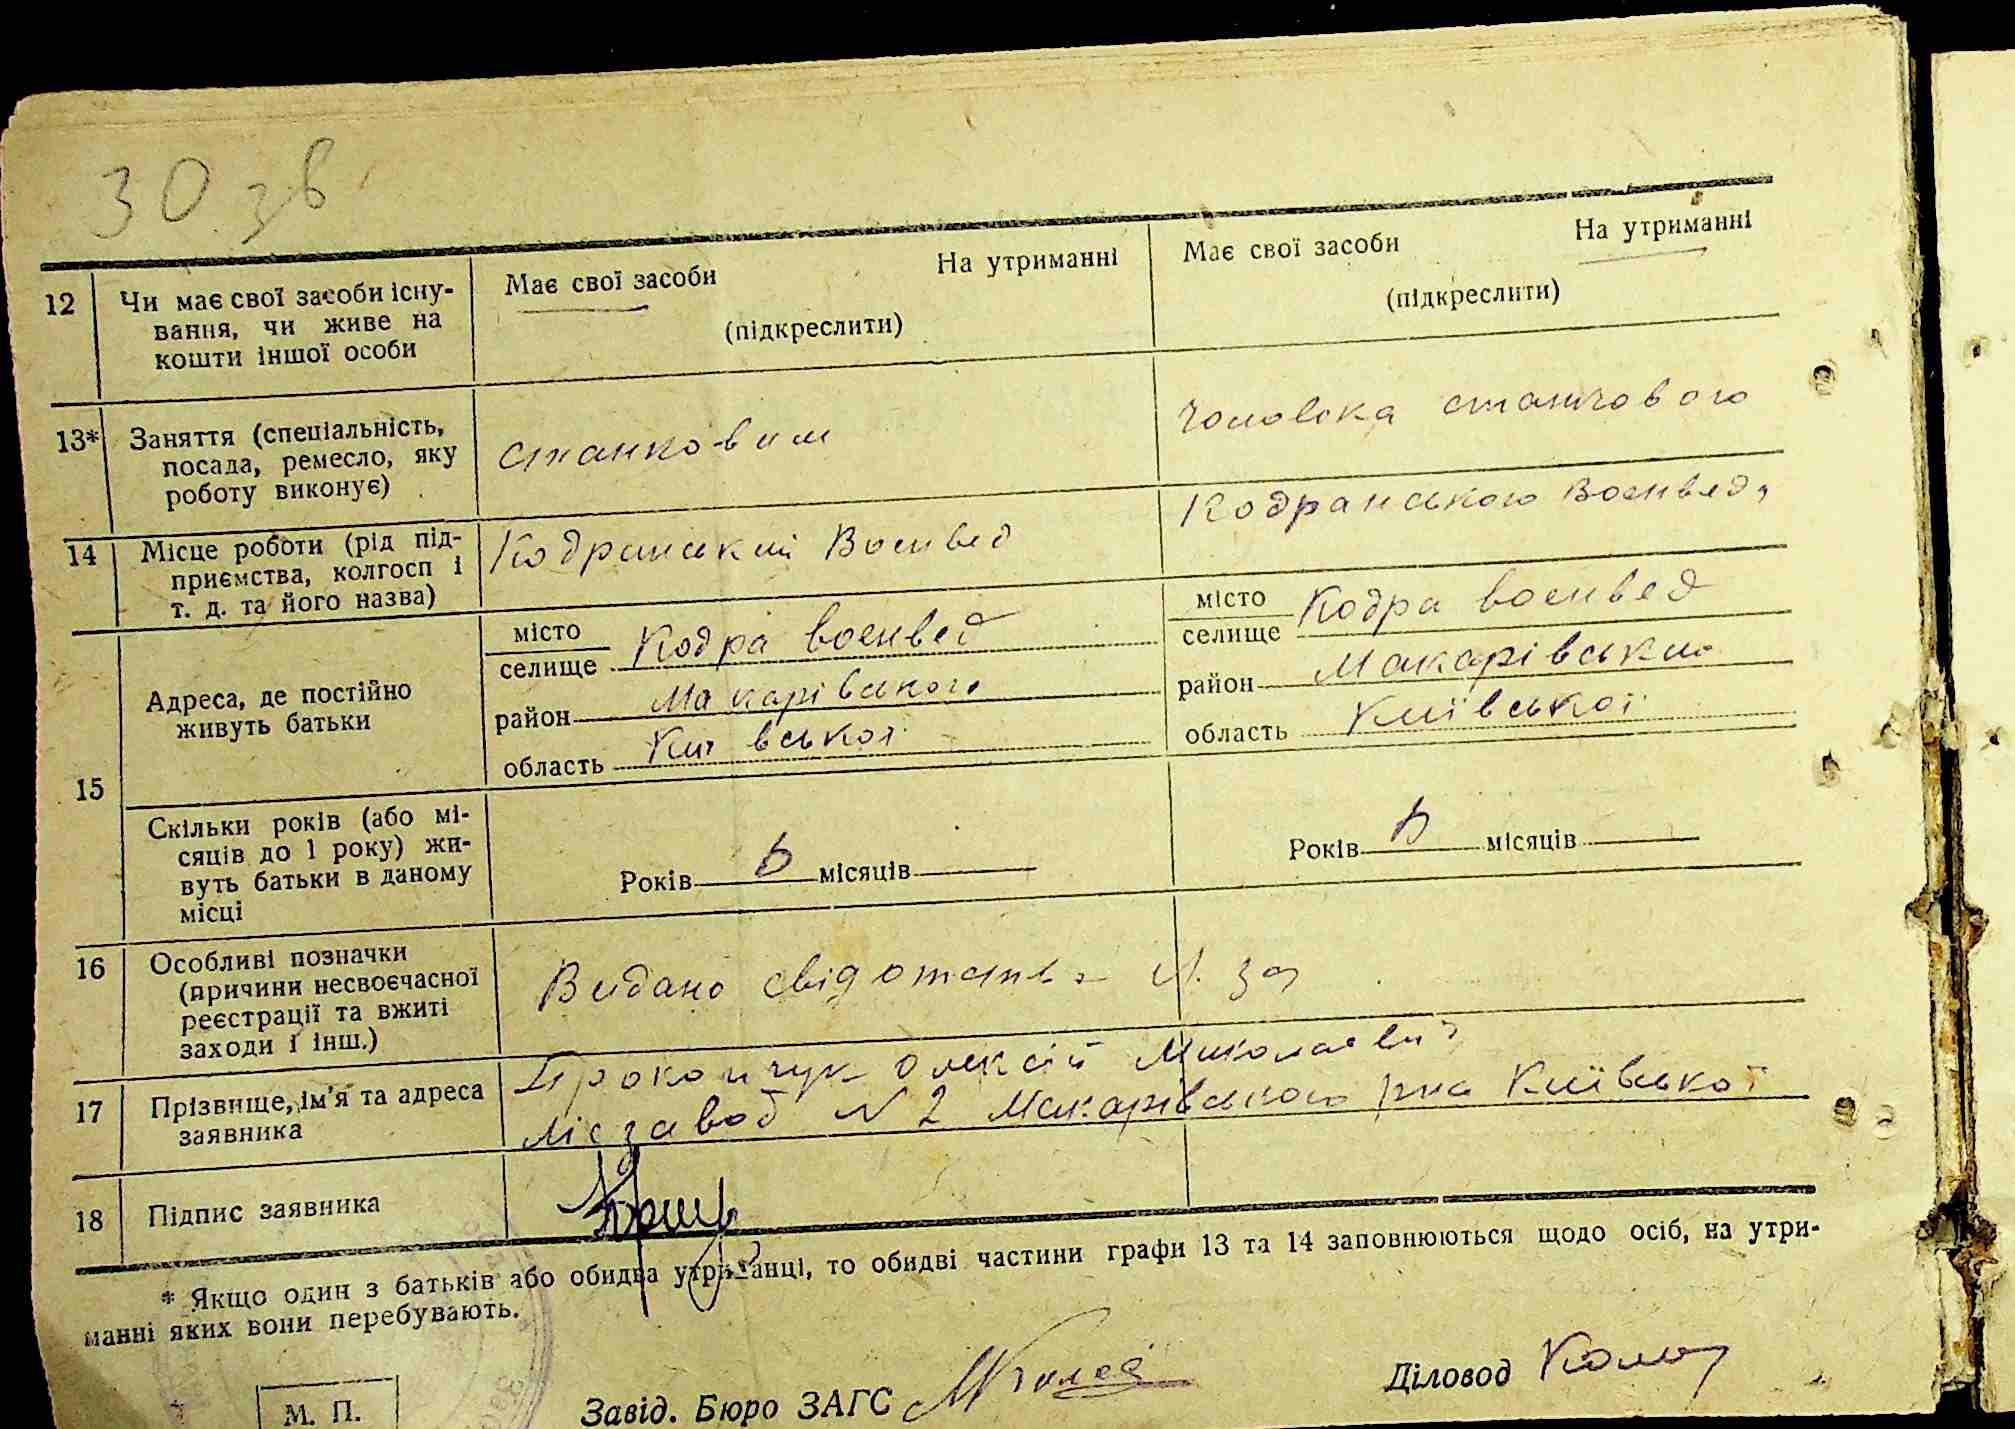 30 зв
12 Чи має свої засоби існу- Має свої засоби На утриманні Має свої засоби На утриманні
вання, чи живе на (підкреслити) (підкреслити)
кошти іншої особи
13* Заняття (спеціальність, становим чоловіка станчового
посада, ремесло, яку
роботу виконує)
14 Місце роботи (рід під- Кодранський Воєнвед Кодранського Воєнведу
приємства, колгосп і
т. д. та його назва)
15 Адреса, де постійно
живуть батьки
місто
селище Кодра воєнвед
район Макарівського
область Київської
місто
селище Кодра воєнвед
район Макарівський
область Київської
Скільки років (або мі-
сяців до 1 року) жи-
вуть батьки в даному
місці
Років місяців Років місяців
16 Особливі позначки
(причини несвоєчасної
реєстрації та вжиті
заходи і інш.)
Видано свідотств
17 Прізвище, ім'я та адреса
заявника
Прокопчук Олексій Миколаєвич
Лісзавод №2 Макарівського р-на Київської
18 Підпис заявника
* Якщо один з батьків або обидва утриманці, то обидві частини графи 13 та 14 заповнюються щодо осіб, на утри-
манні яких вони перебувають.
М. П.
Завід. Бюро ЗАГС
Діловод